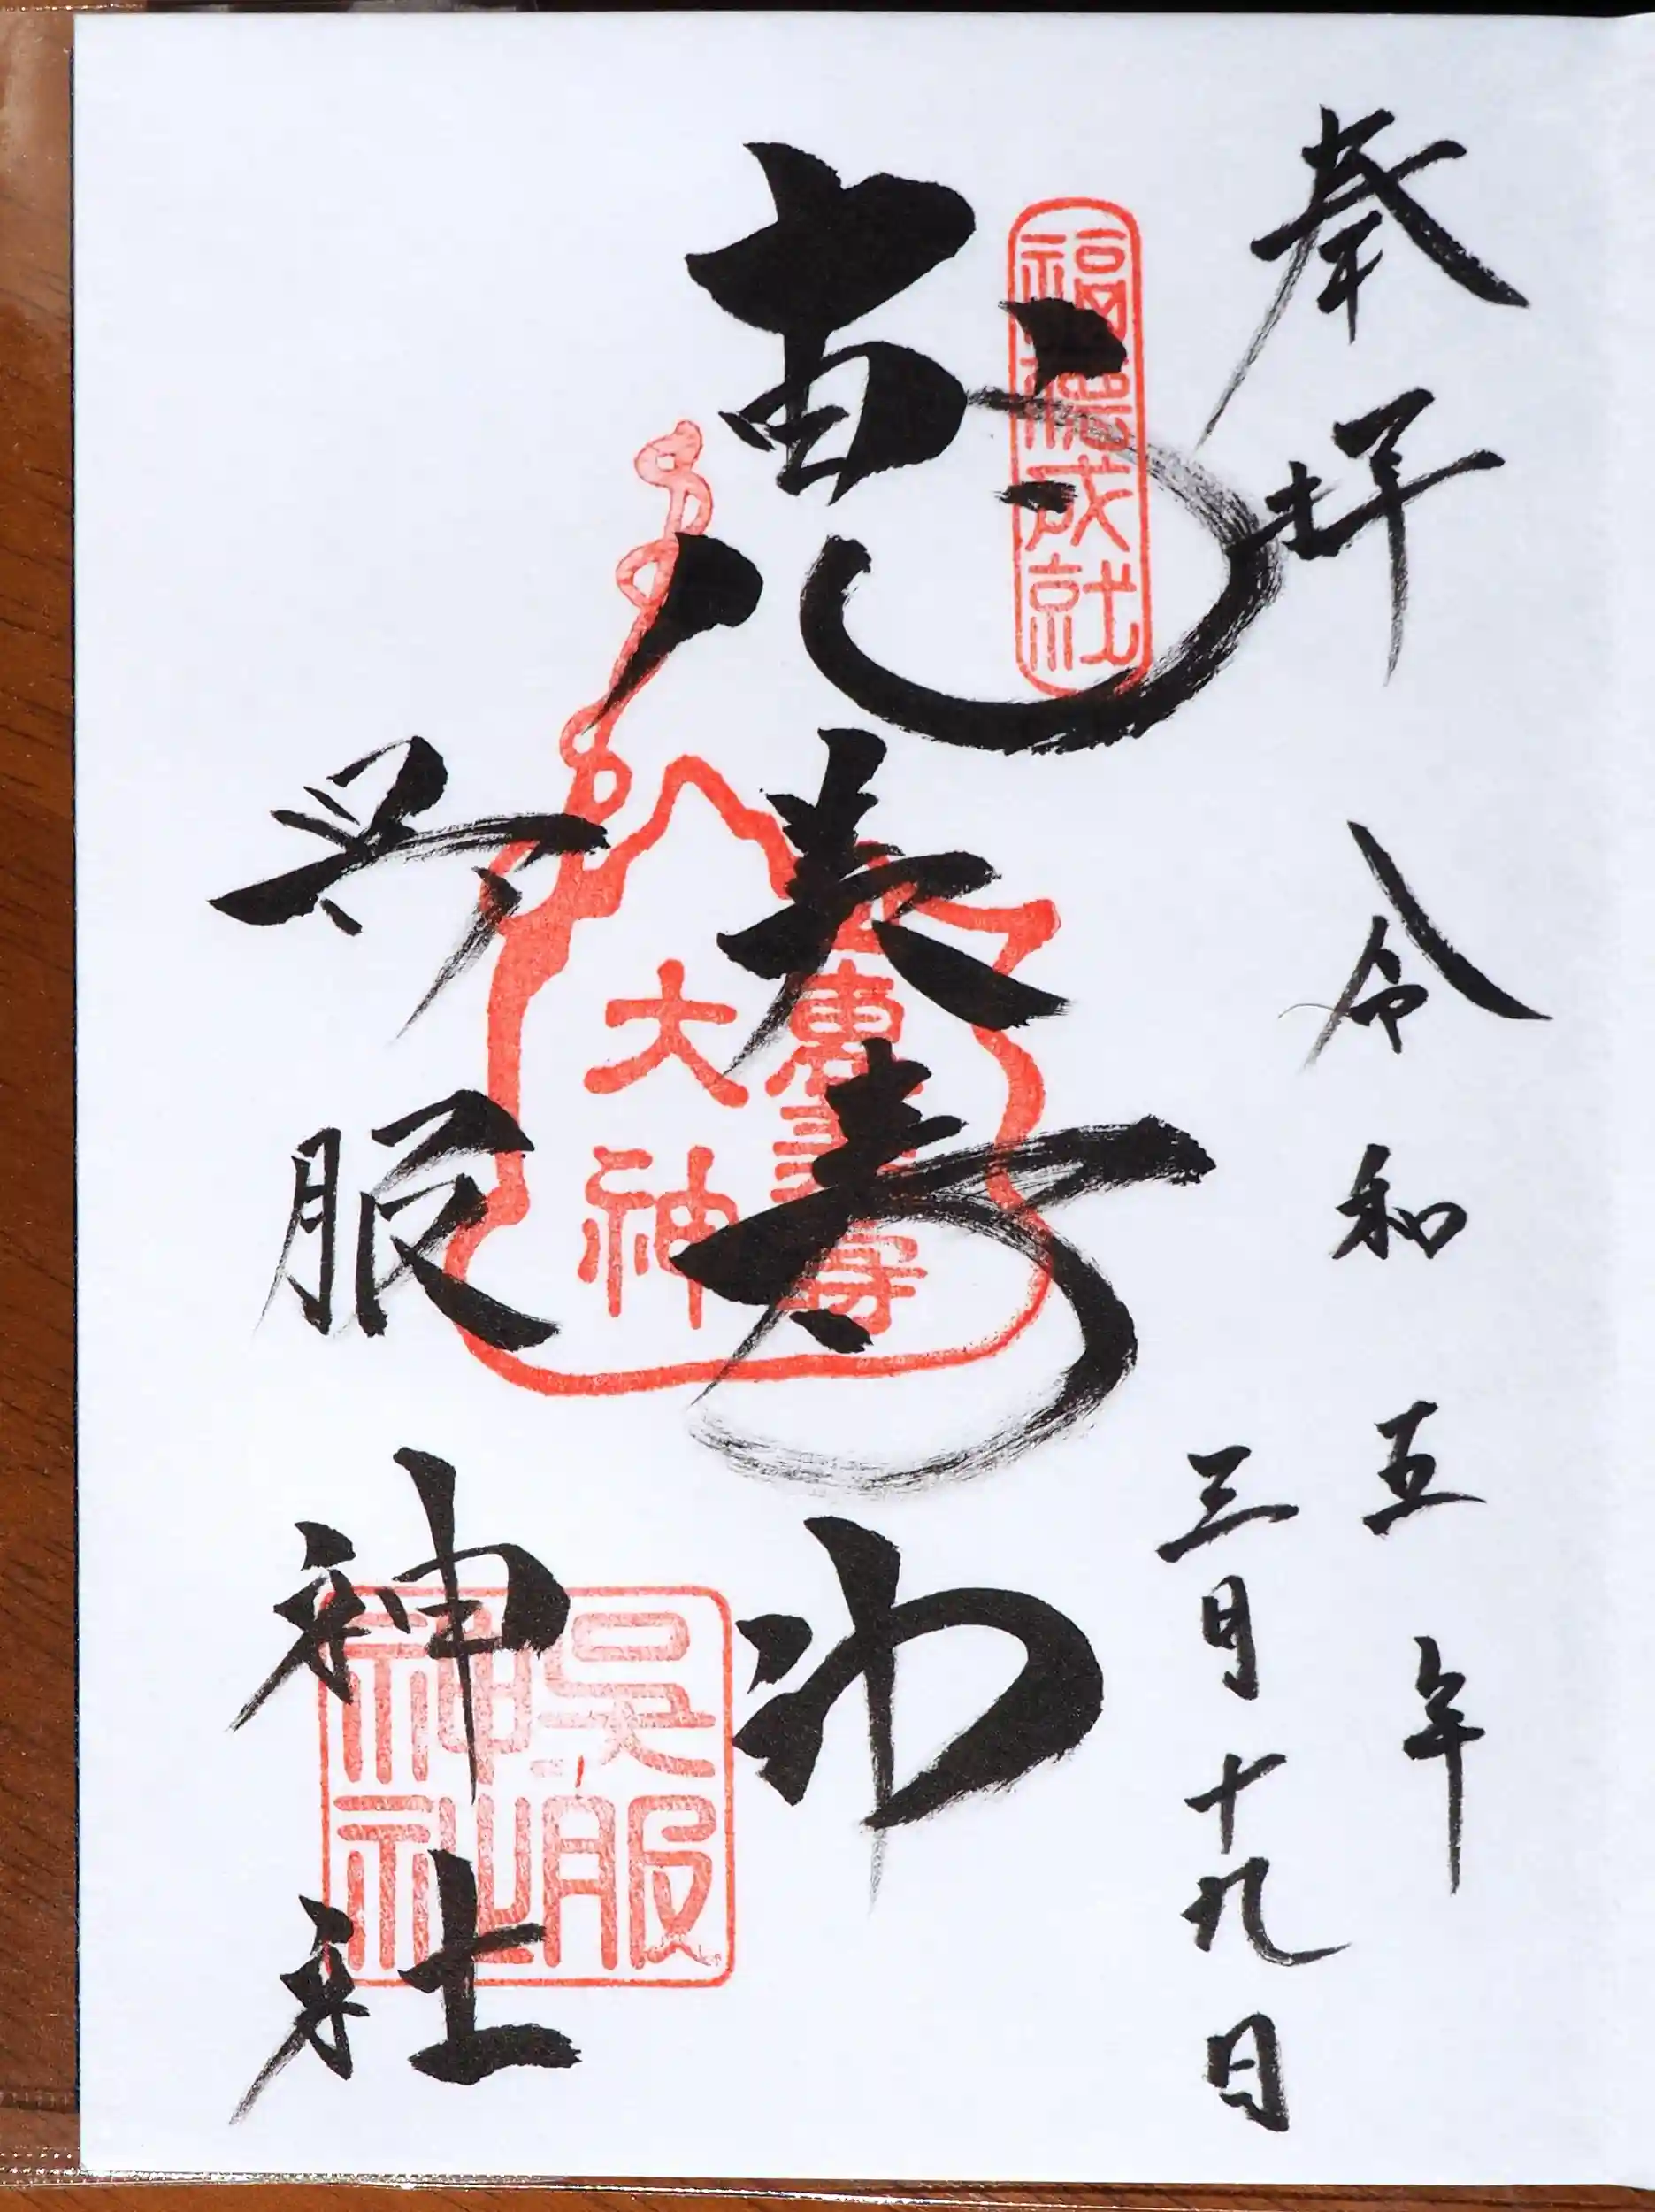 奉拝
令和五年
三月十九日
恵美寿神
恵美寿
大神
呉服神社
呉服
神社